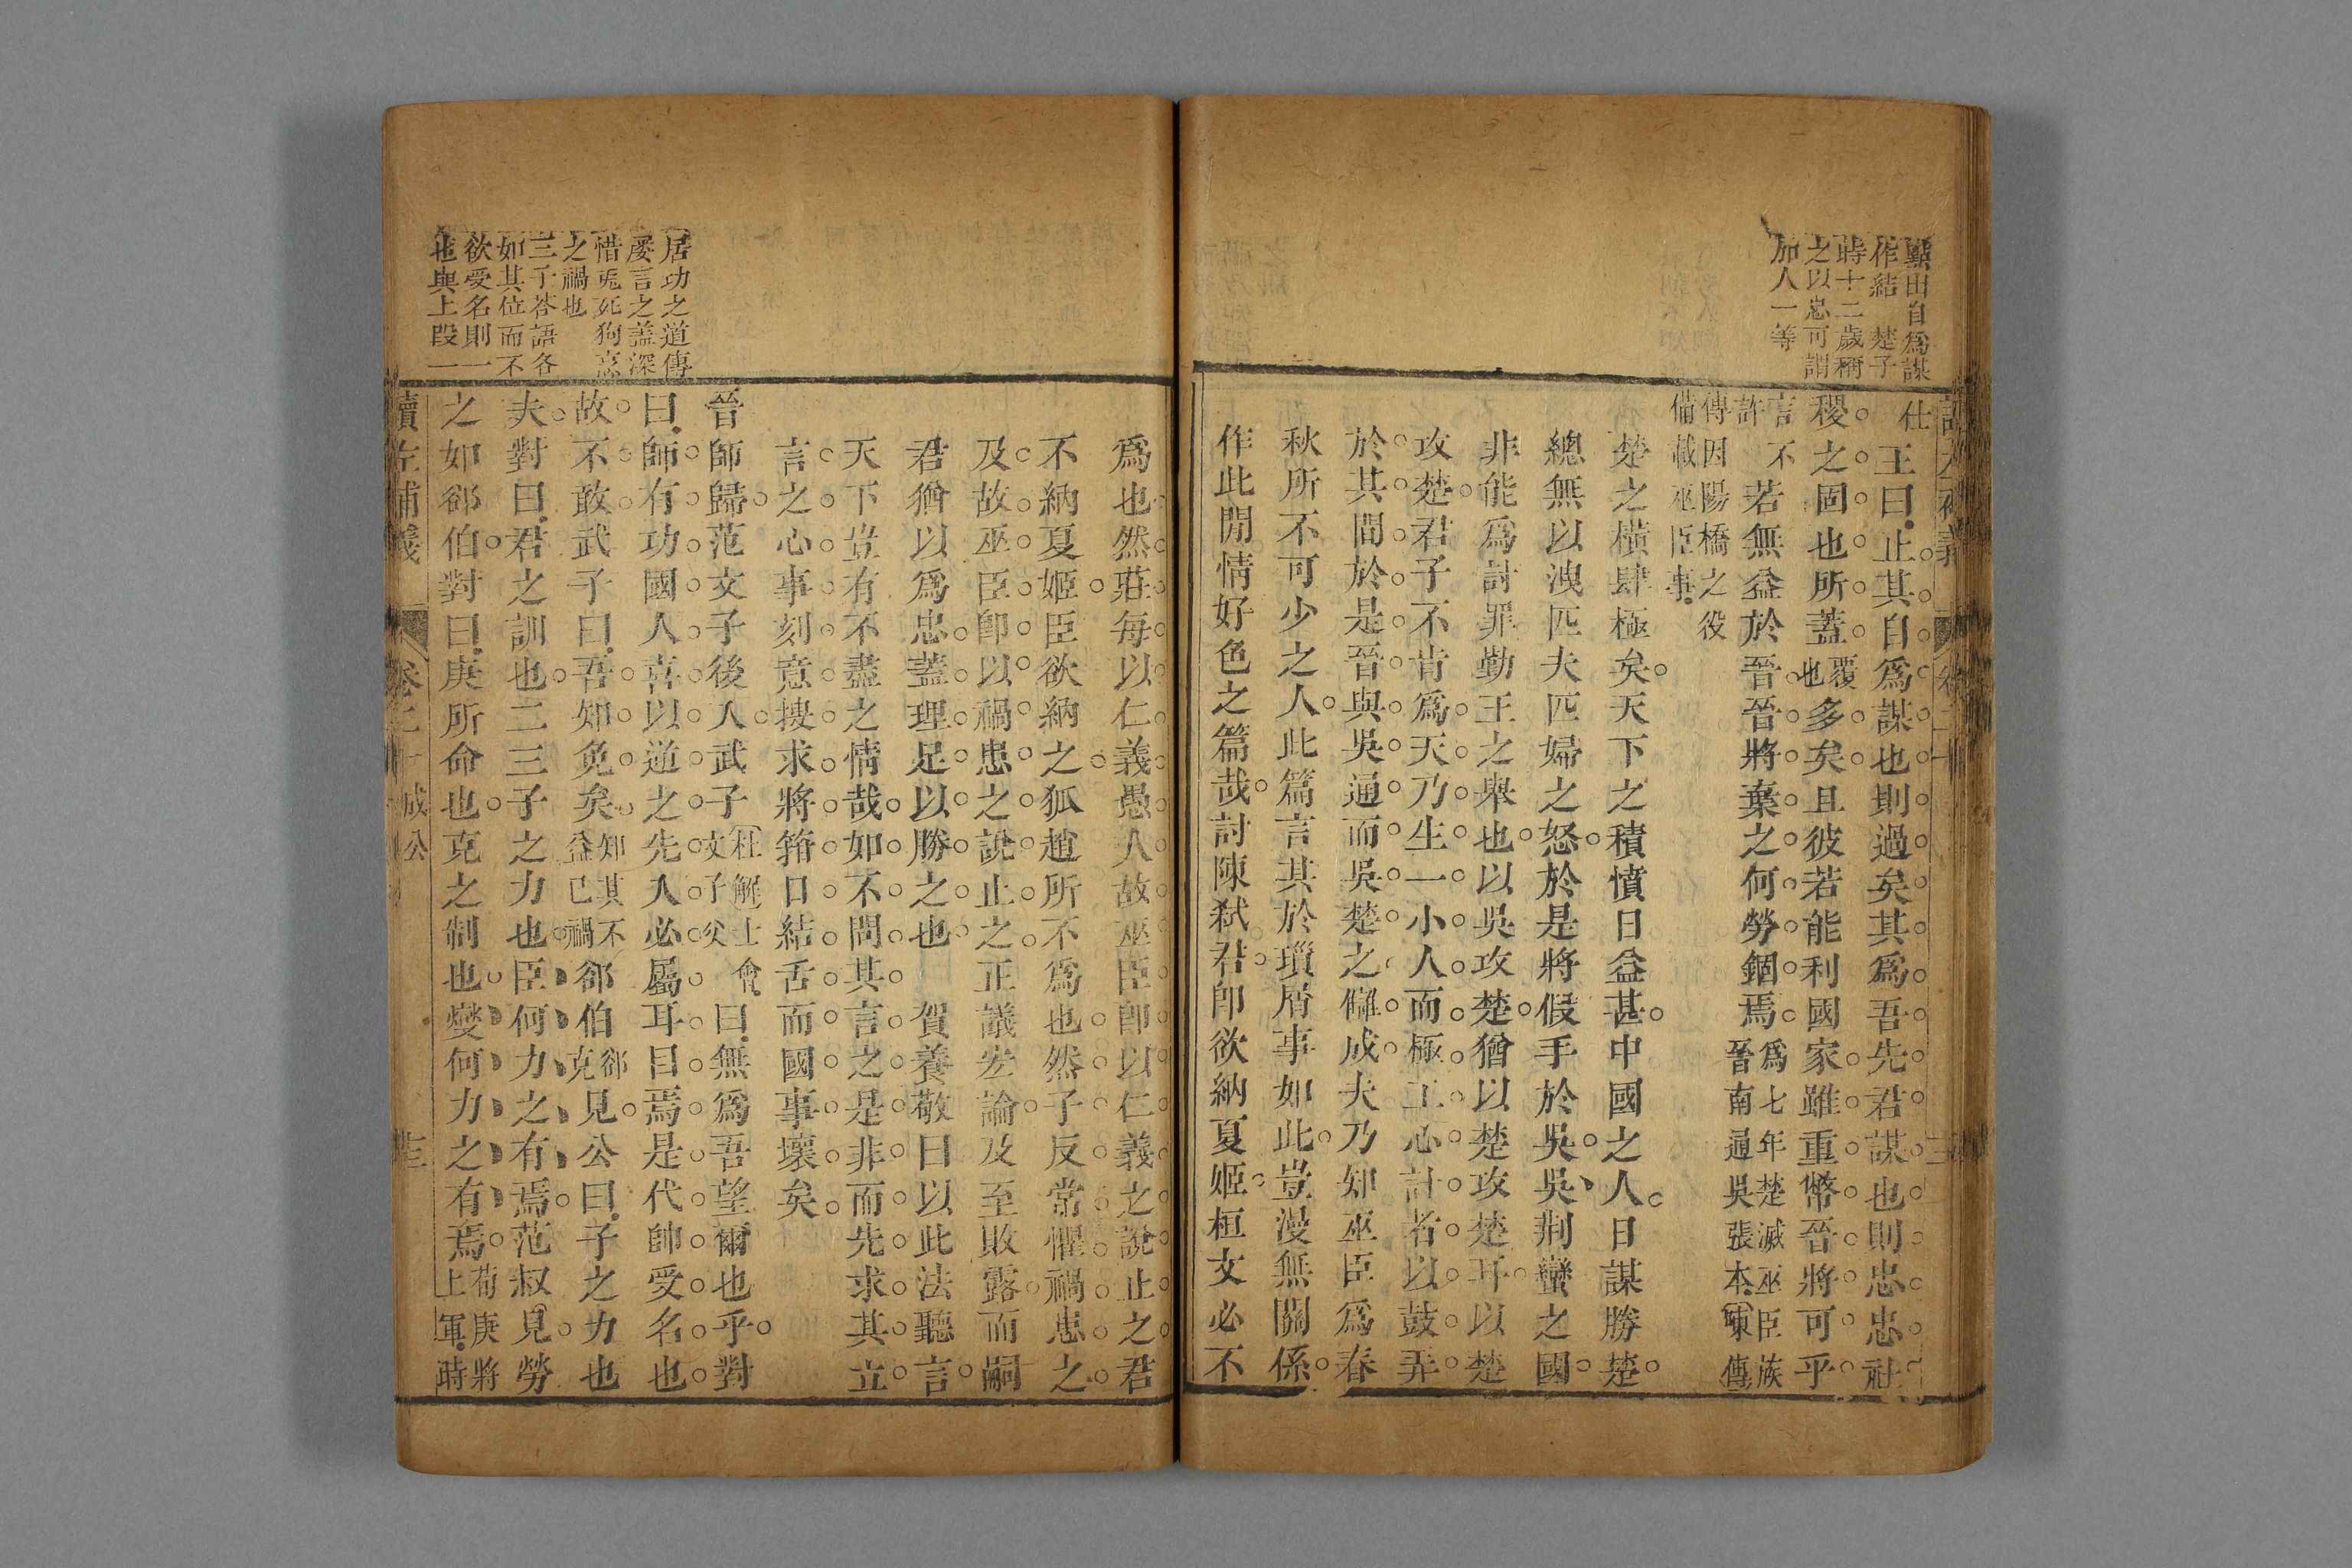 點出自爲謀
作結　楚子
時十二歲稱
之以忠可謂
加人一等
仕
王曰止其自爲謀也則過矣其爲吾先君謀也則忠忠社
稷之固也所蓋覆也多矣且彼若能利國家雖重幣晉將可乎
言不許
若無益於晉晉將棄之何勞錮焉爲七年楚滅巫臣族晉南通吳張本陳傳
傳因陽橋之役
備載巫臣事
楚之橫肆極矣天下之積憤日益甚中國之人日謀勝楚
總無以洩匹夫匹婦之怒於是將假手於吳吳荆蠻之國
非能爲討罪勤王之舉也以吳攻楚猶以楚攻楚耳以楚
攻楚君子不肯爲天乃生一小人而極工心計者以鼓弄
於其間於是晉與吳通而吳楚之讎成夫乃知巫臣爲春
秋所不可少之人此篇言其於瑣屑事如此豈漫無關係
作此閒情好色之篇哉討陳弑君即欲納夏姬桓文必不
爲也然莊每以仁義愚人故巫臣即以仁義之說止之君
不納夏姬臣欲納之狐趙所不爲也然子反常懼禍患之
及故巫臣即以禍患之說止之正議宏論及至敗露而嗣
君猶以爲忠蓋理足以勝之也　賀養敬曰以此法聽言
天下豈有不盡之情哉如不問其言之是非而先求其立
言之心事刻意搜求將箝口結舌而國事壞矣
晉師歸范文子後入武子杜解士會文子父曰無爲吾望爾也乎對
曰師有功國人喜以逆之先入必屬耳目焉是代帥受名也
故不敢武子曰吾知免矣知其不益己禍郤伯郤克見公曰子之力也
夫對曰君之訓也二三子之力也臣何力之有焉范叔見勞
之如郤伯對曰庚所命也克之制也燮何力之有焉荀庚將上軍時
居功之道傳
屢言之蓋深
惜兎死狗烹
之禍也
三子荅語各
如其位而不
欲受名則一
也與上段一
讀左補義
卷二十　成公